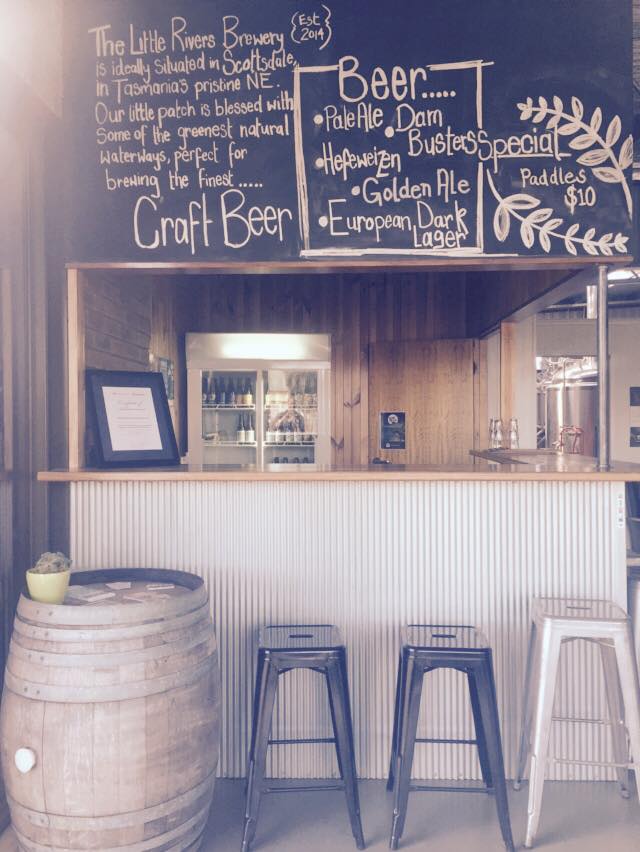 The Little Rivers Brewery
{Est 2014}
is ideally situated in Scottsdale,
in Tasmania's pristine NE.
Our little patch is blessed with
some of the greenest natural
waterways, perfect for
brewing the finest.....
Craft Beer
Beer.....
•Pale Ale
•Dam Busters
•Hefeweizen
•Golden Ale
•European Dark Lager
Special
Paddles
$10